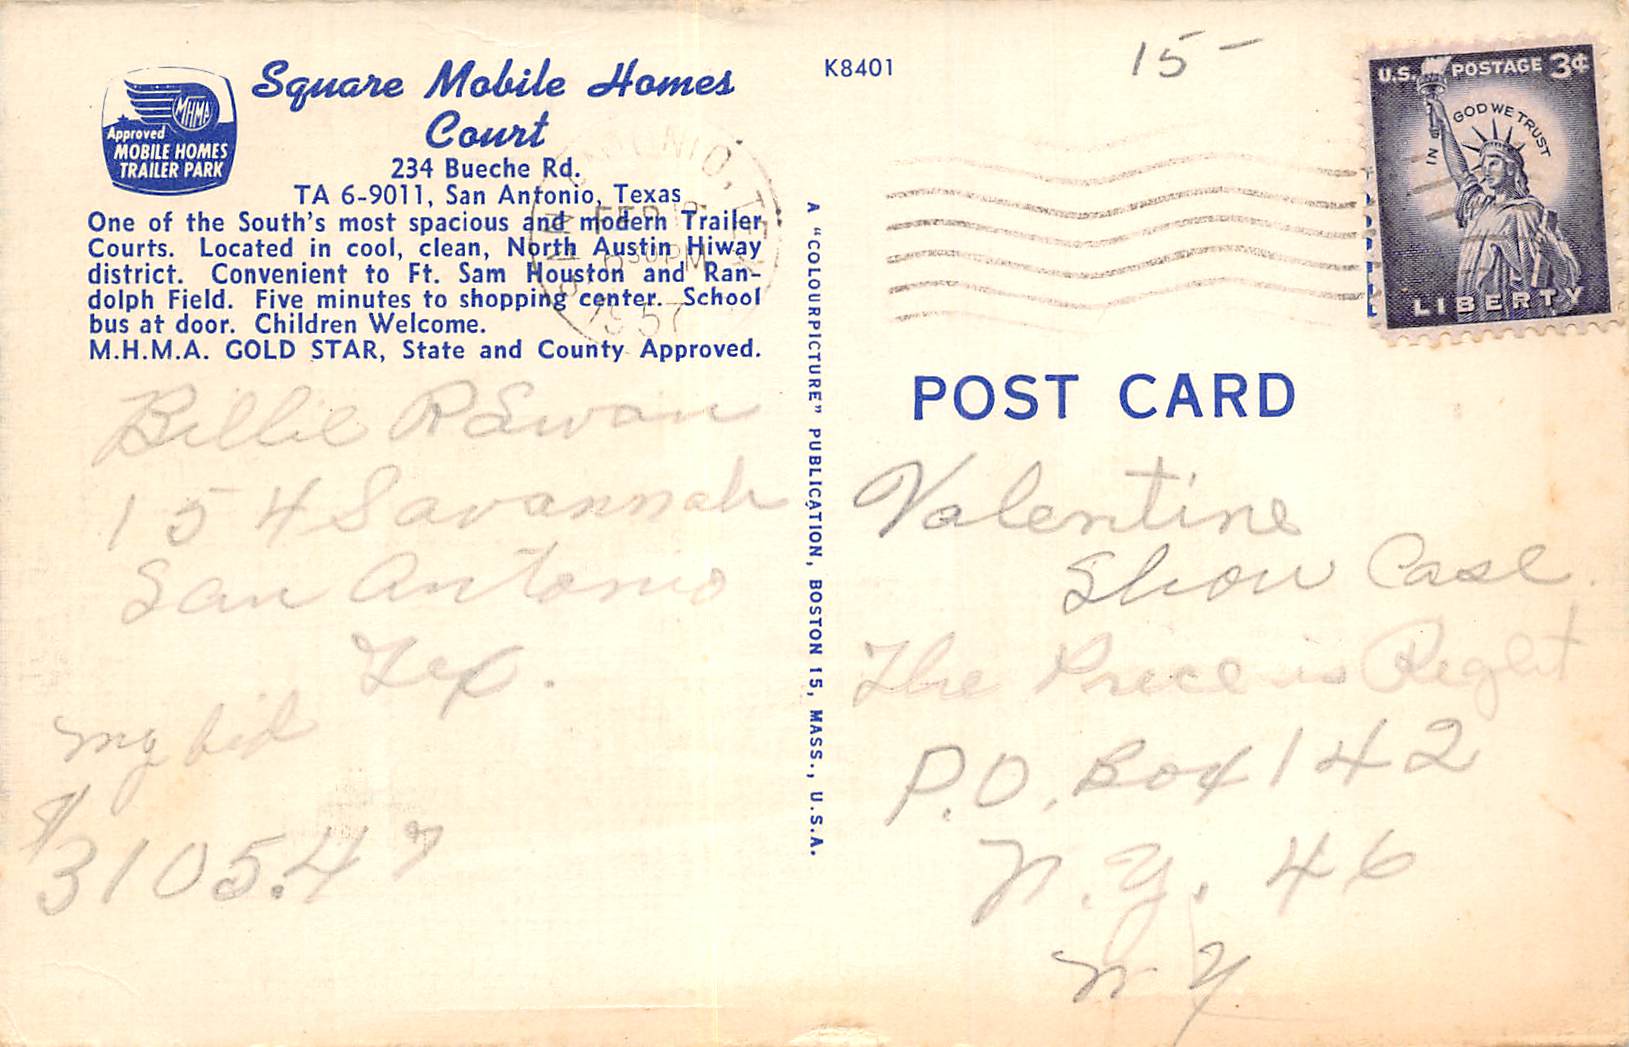 MHMA
Approved
MOBILE HOMES
TRAILER PARK
Square Mobile Homes
Court
234 Bueche Rd.
TA 6-9011, San Antonio, Texas
One of the South's most spacious and modern Trailer
Courts. Located in cool, clean, North Austin Hiway
district. Convenient to Ft. Sam Houston and Ran-
dolph Field. Five minutes to shopping center. School
bus at door. Children Welcome.
M.H.M.A. GOLD STAR, State and County Approved.
Billie R Ewan
154 Savannah
San Antonio
Tex.
my bid
$3105.47
A "COLOURPICTURE" PUBLICATION, BOSTON 15, MASS., U.S.A.
K8401
15-
FEB
630PM
1957
U.S. POSTAGE 3¢
IN GOD WE TRUST
LIBERTY
POST CARD
Valentine
Show Case.
The Price is Right
P.O. Box 142
N.Y. 46
N Y